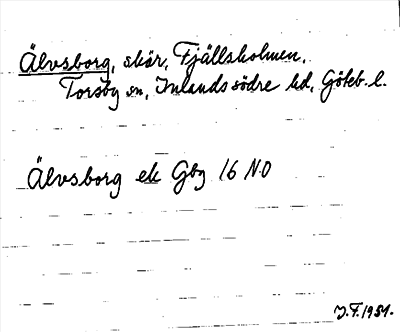 Älvsborg, skär, Fjällsholmen,
Torsby sn, Inlands södre hd, Göteb. l.
Älvsborg ek Gbg 16 NO
J.F. 1951.